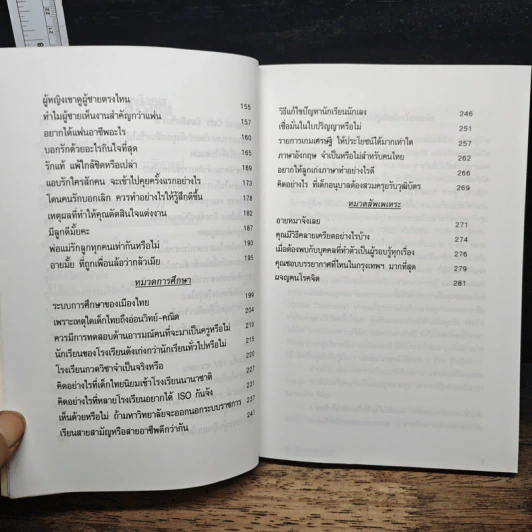 ผู้หญิงเขาดูผู้ชายตรงไหน 156
ทำไมผู้ชายเห็นงานสำคัญกว่าแฟน 157
อยากได้แฟนอาชีพอะไร 160
บอกรักด้วยอะไรกินใจที่สุด 165
รักแท้ แพ้ใกล้ชิดหรือเปล่า 169
แอบรักใครสักคน จะเข้าไปคุยครั้งแรกอย่างไร 173
โดนคนรักบอกเลิก ควรทำอย่างไรให้รู้สึกดีขึ้น 178
เหตุผลที่ทำให้คุณตัดสินใจแต่งงาน 182
มีลูกดีมั้ยคะ 187
พ่อแม่รักลูกทุกคนเท่ากันหรือไม่ 190
อายมั้ย ที่ถูกเพื่อนล้อว่ากลัวเมีย 195
หมวดการศึกษา
ระบบการศึกษาของเมืองไทย 199
เพราะเหตุใดเด็กไทยถึงอ่อนวิทย์-คณิต 204
ควรมีการทดสอบด้านอารมณ์คนที่จะมาเป็นครูหรือไม่ 210
นักเรียนของโรงเรียนดังเก่งกว่านักเรียนทั่วไปหรือไม่ 215
โรงเรียนกวดวิชาจำเป็นจริงหรือ 220
คิดอย่างไรที่เด็กไทยนิยมเข้าโรงเรียนนานาชาติ 227
คิดอย่างไรที่หลายโรงเรียนอยากได้ ISO กันจัง 231
เห็นด้วยหรือไม่ ถ้ามหาวิทยาลัยจะออกนอกระบบราชการ 237
เรียนสายสามัญหรือสายอาชีพดีกว่ากัน 241
วิธีแก้ไขปัญหานักเรียนนักเลง 246
เชื่อมั่นในใบปริญญาหรือไม่ 251
รายการเกมเศรษฐี ให้ประโยชน์ได้มากเท่าใด 257
ภาษาอังกฤษ จำเป็นหรือไม่สำหรับคนไทย 262
อยากให้ลูกเก่งภาษาทำอย่างไรดี 266
คิดอย่างไร ที่เด็กอนุบาลต้องสวมครุยรับวุฒิบัตร 269
หมวดสัพเพเหระ
อายหมาจังเลย 271
คุณมีวิธีคลายเครียดอย่างไรบ้าง 274
เมื่อต้องพบกับบุคคลที่ทำตัวเป็นผู้รอบรู้ทุกเรื่อง 276
คุณชอบบรรยากาศที่ไหนในกรุงเทพฯ มากที่สุด 279
ผจญคนโรคจิต 281